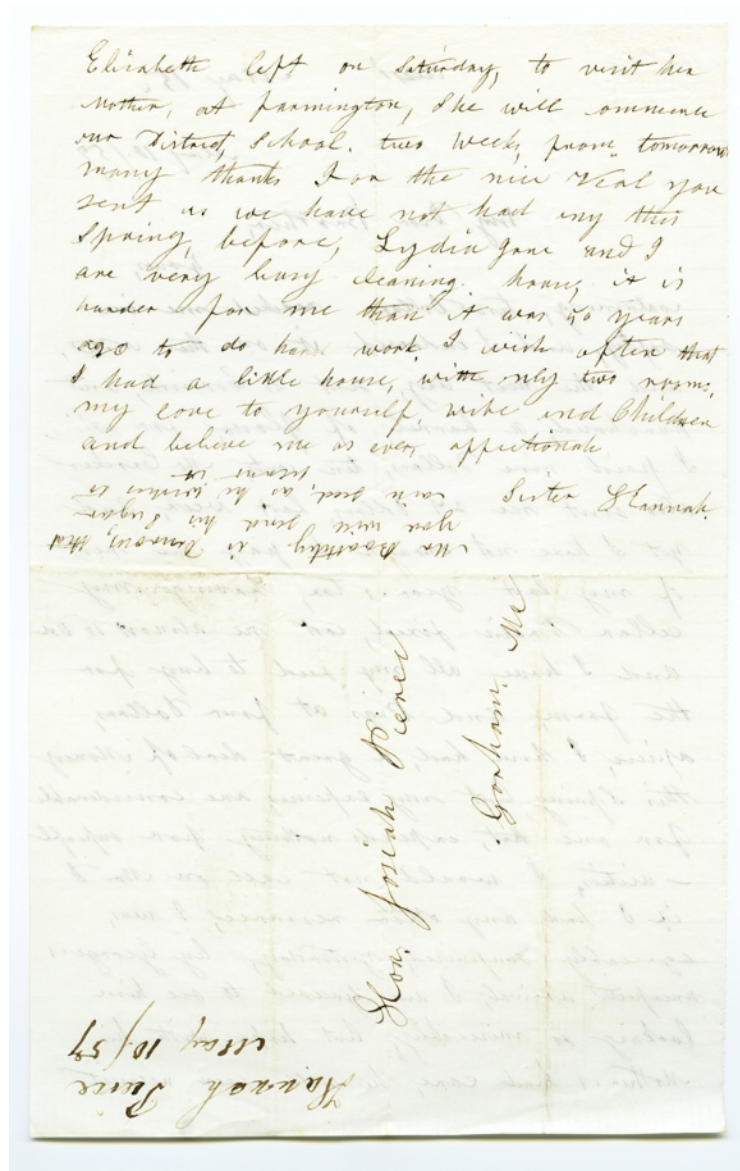 Elizabeth left on Saturday, to visit her
Mother, at Farmington, She will commence
our District, School. two weeks, from tomorrow
many thanks For the nice Veal you
sent us we have not had any this
Spring, before, Lydia Jane and I
are very busy cleaning. house, it is
harder for me than it was 50 years
ago to do hard work I wish often that
I had a little house, with only two rooms,
my love to yourself, wife and Children
and believe me as ever, affectionate
Sister Hannah.
Mr is anxious, that
you will send his Sugar
soon, as he wishes to
Hon. Josiah Pierce
Gorham. Me
Hannah Pierce
May 10/57